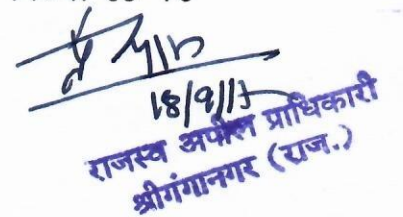 18/9/17
राजस्व अपील प्राधिकारी
श्रीगंगानगर (राज.)